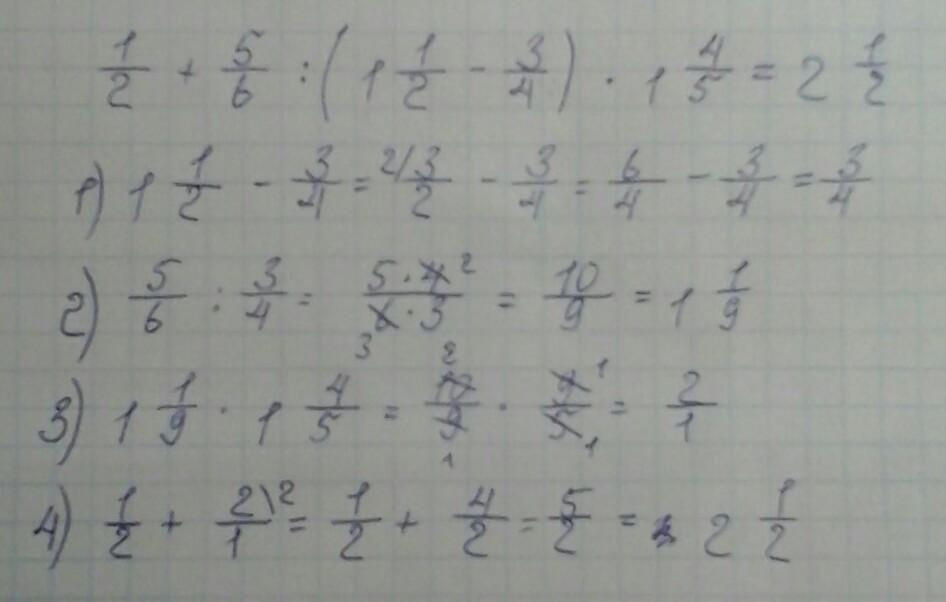 1/2 + 5/6 : (1 1/2 - 3/4) · 1 4/5 = 2 1/2
1) 1 1/2 - 3/4 = 2/ 3/2 - 3/4 = 6/4 - 3/4 = 3/4
2) 5/6 : 3/4 = 5·4 2 / 6·3 3 = 10/9 = 1 1/9
3) 1 1/9 · 1 4/5 = 2 10/9 1 · 9/5 1 1 = 2/1
4) 1/2 + 2/1 \2 = 1/2 + 4/2 = 5/2 = 2 1/2